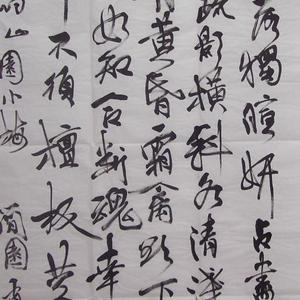 落獨暄妍占盡
疏影橫斜水清淺
黄昏霜禽欲下
如知合断魂幸
不須檀板共
山園小梅 園